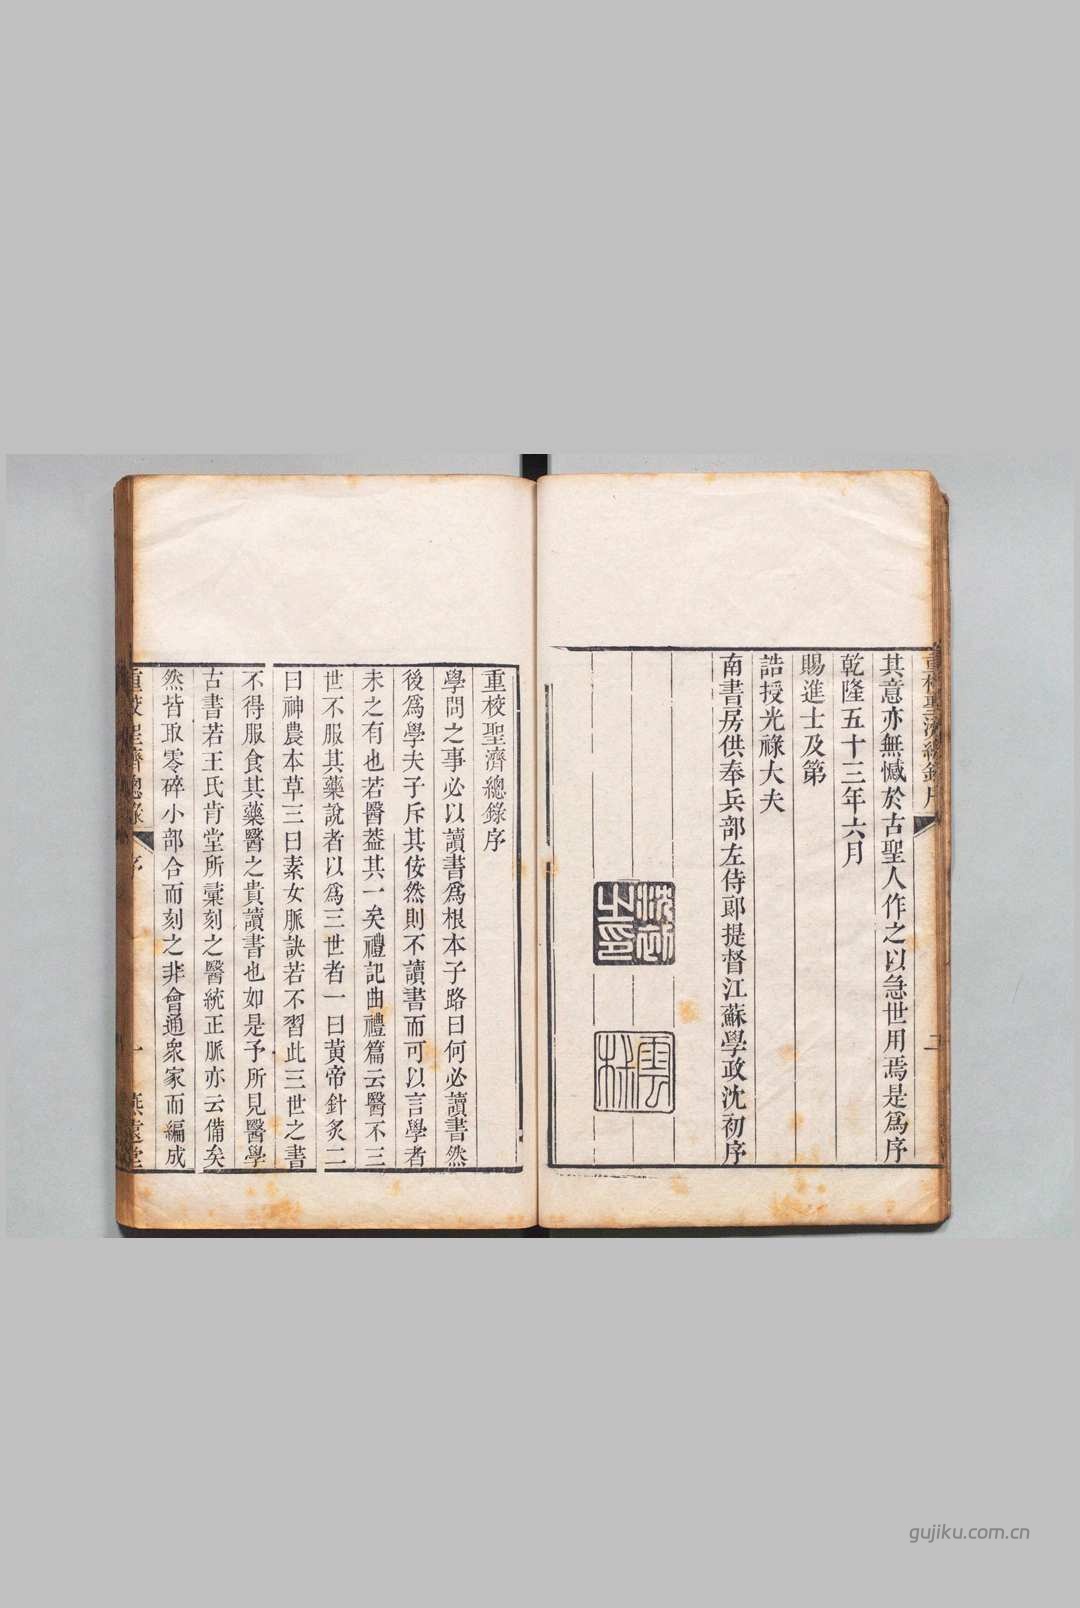 其意亦無憾於古聖人作之以急世用焉是為序
乾隆五十三年六月
賜進士及第
誥授光祿大夫
南書房供奉兵部左侍郎提督江蘇學政沈初序
沈初之印
雲椒
重校聖濟總錄序
學問之事必以讀書為根本子路曰何必讀書然
後為學夫子斥其佞然則不讀書而可以言學者
未之有也若醫葢其一矣禮記曲禮篇云醫不三
世不服其藥說者以為三世者一曰黃帝針炙二
曰神農本草三曰素女脈訣若不習此三世之書
不得服食其藥醫之貴讀書也如是予所見醫學
古書若王氏肯堂所彚刻之醫統正脈亦云備矣
然皆取零碎小部合而刻之非會通衆家而編成
重校聖濟總錄
序
一
燕遠堂
gujiku.com.cn